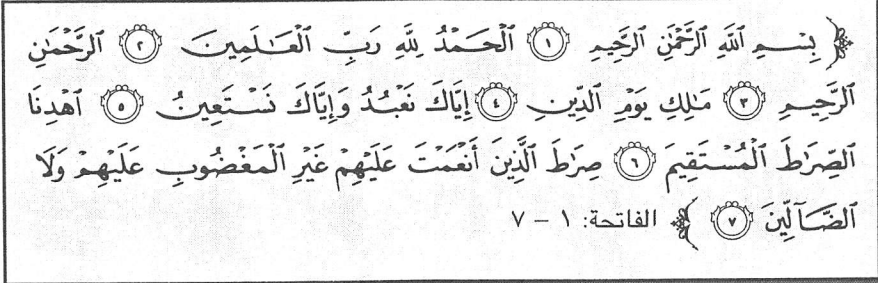 ﴿ بِسْمِ ٱللَّهِ ٱلرَّحْمَٰنِ ٱلرَّحِيمِ ١ ٱلْحَمْدُ لِلَّهِ رَبِّ ٱلْعَـٰلَمِينَ ٢ ٱلرَّحْمَٰنِ
ٱلرَّحِيمِ ٣ مَـٰلِكِ يَوْمِ ٱلدِّينِ ٤ إِيَّاكَ نَعْبُدُ وَإِيَّاكَ نَسْتَعِينُ ٥ ٱهْدِنَا
ٱلصِّرَٰطَ ٱلْمُسْتَقِيمَ ٦ صِرَٰطَ ٱلَّذِينَ أَنْعَمْتَ عَلَيْهِمْ غَيْرِ ٱلْمَغْضُوبِ عَلَيْهِمْ وَلَا
ٱلضَّآلِّينَ ٧ ﴾ الفاتحة: ١ – ٧